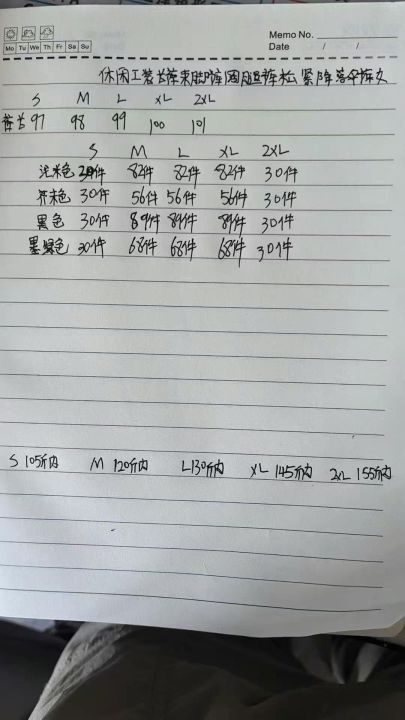 Memo No.
Mo Tu We Th Fr Sa Su
Date / /
休闲工装长裤束脚裤
S M L XL 2XL
裤长 97 98 99 100 101
S M L XL 2XL
浅米色 件 82件 82件 82件 30件
芥末色 30件 56件 56件 56件 30件
黑色 30件 89件 89件 89件 30件
墨绿色 30件 68件 68件 68件 30件
S 105斤内 M 120斤内 L 130斤内 XL 145斤内 2XL 155斤内